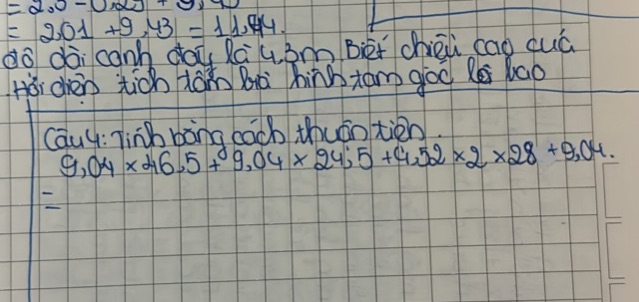 = 2,01 + 9,43 = 11,44.
độ dài cạnh đáy là 4,3m. Biết chiều cao của
Hỏi diện tích tấm bìa hình tam giác là bao
Câu 4: Tính bằng cách thuận tiện.
9,04 × 46,5 + 9,04 × 24,5 + 4,52 × 2 × 28 + 9,04.
=